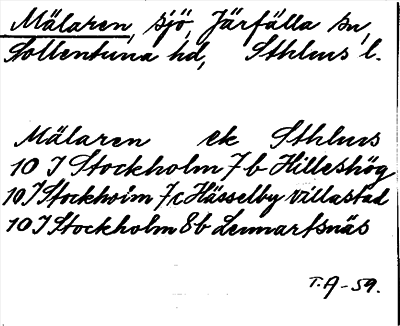 Mälaren, sjö, Järfälla sn,
Sollentuna hd, Sthlms l.
Mälaren ek Sthlms
10 I Stockholm 7b Hilleshög
10 I Stockholm 7c Hässelby villastad
10 I Stockholm 8b Lennartsnäs
T.A-59.